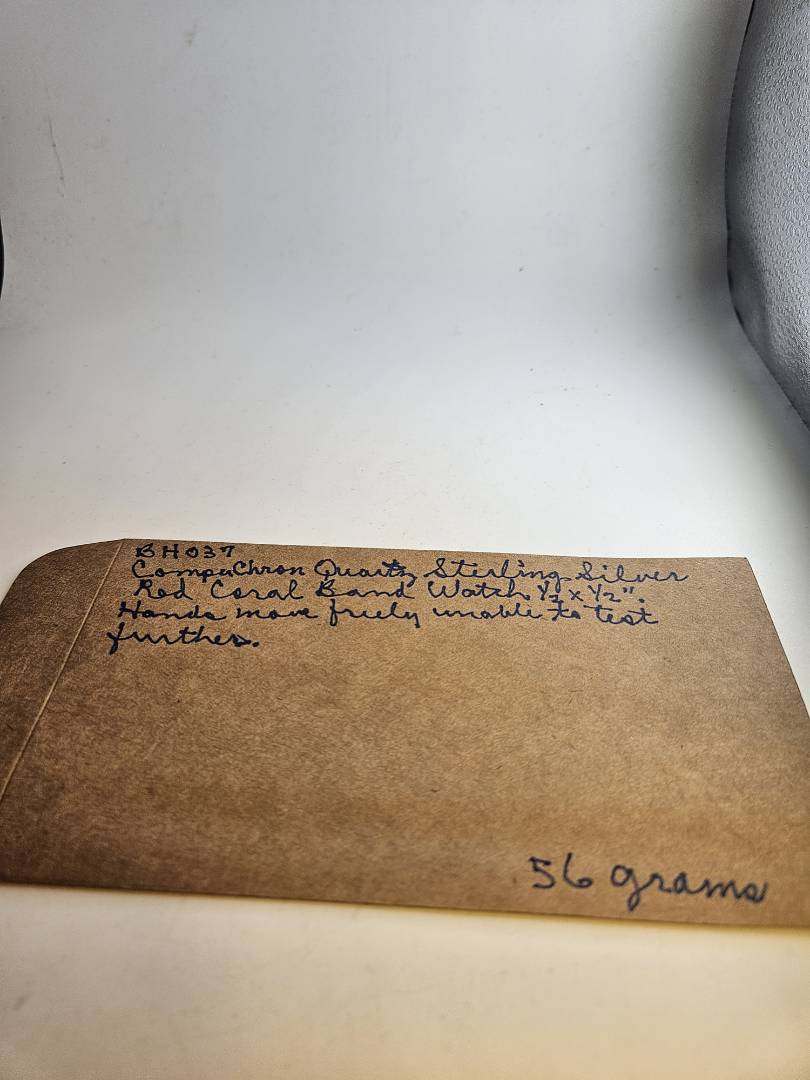 BH037
CompuChron Quartz Sterling Silver
Red Coral Band Watch ½ x ½".
Hands move freely unable to test
further.
56 grams